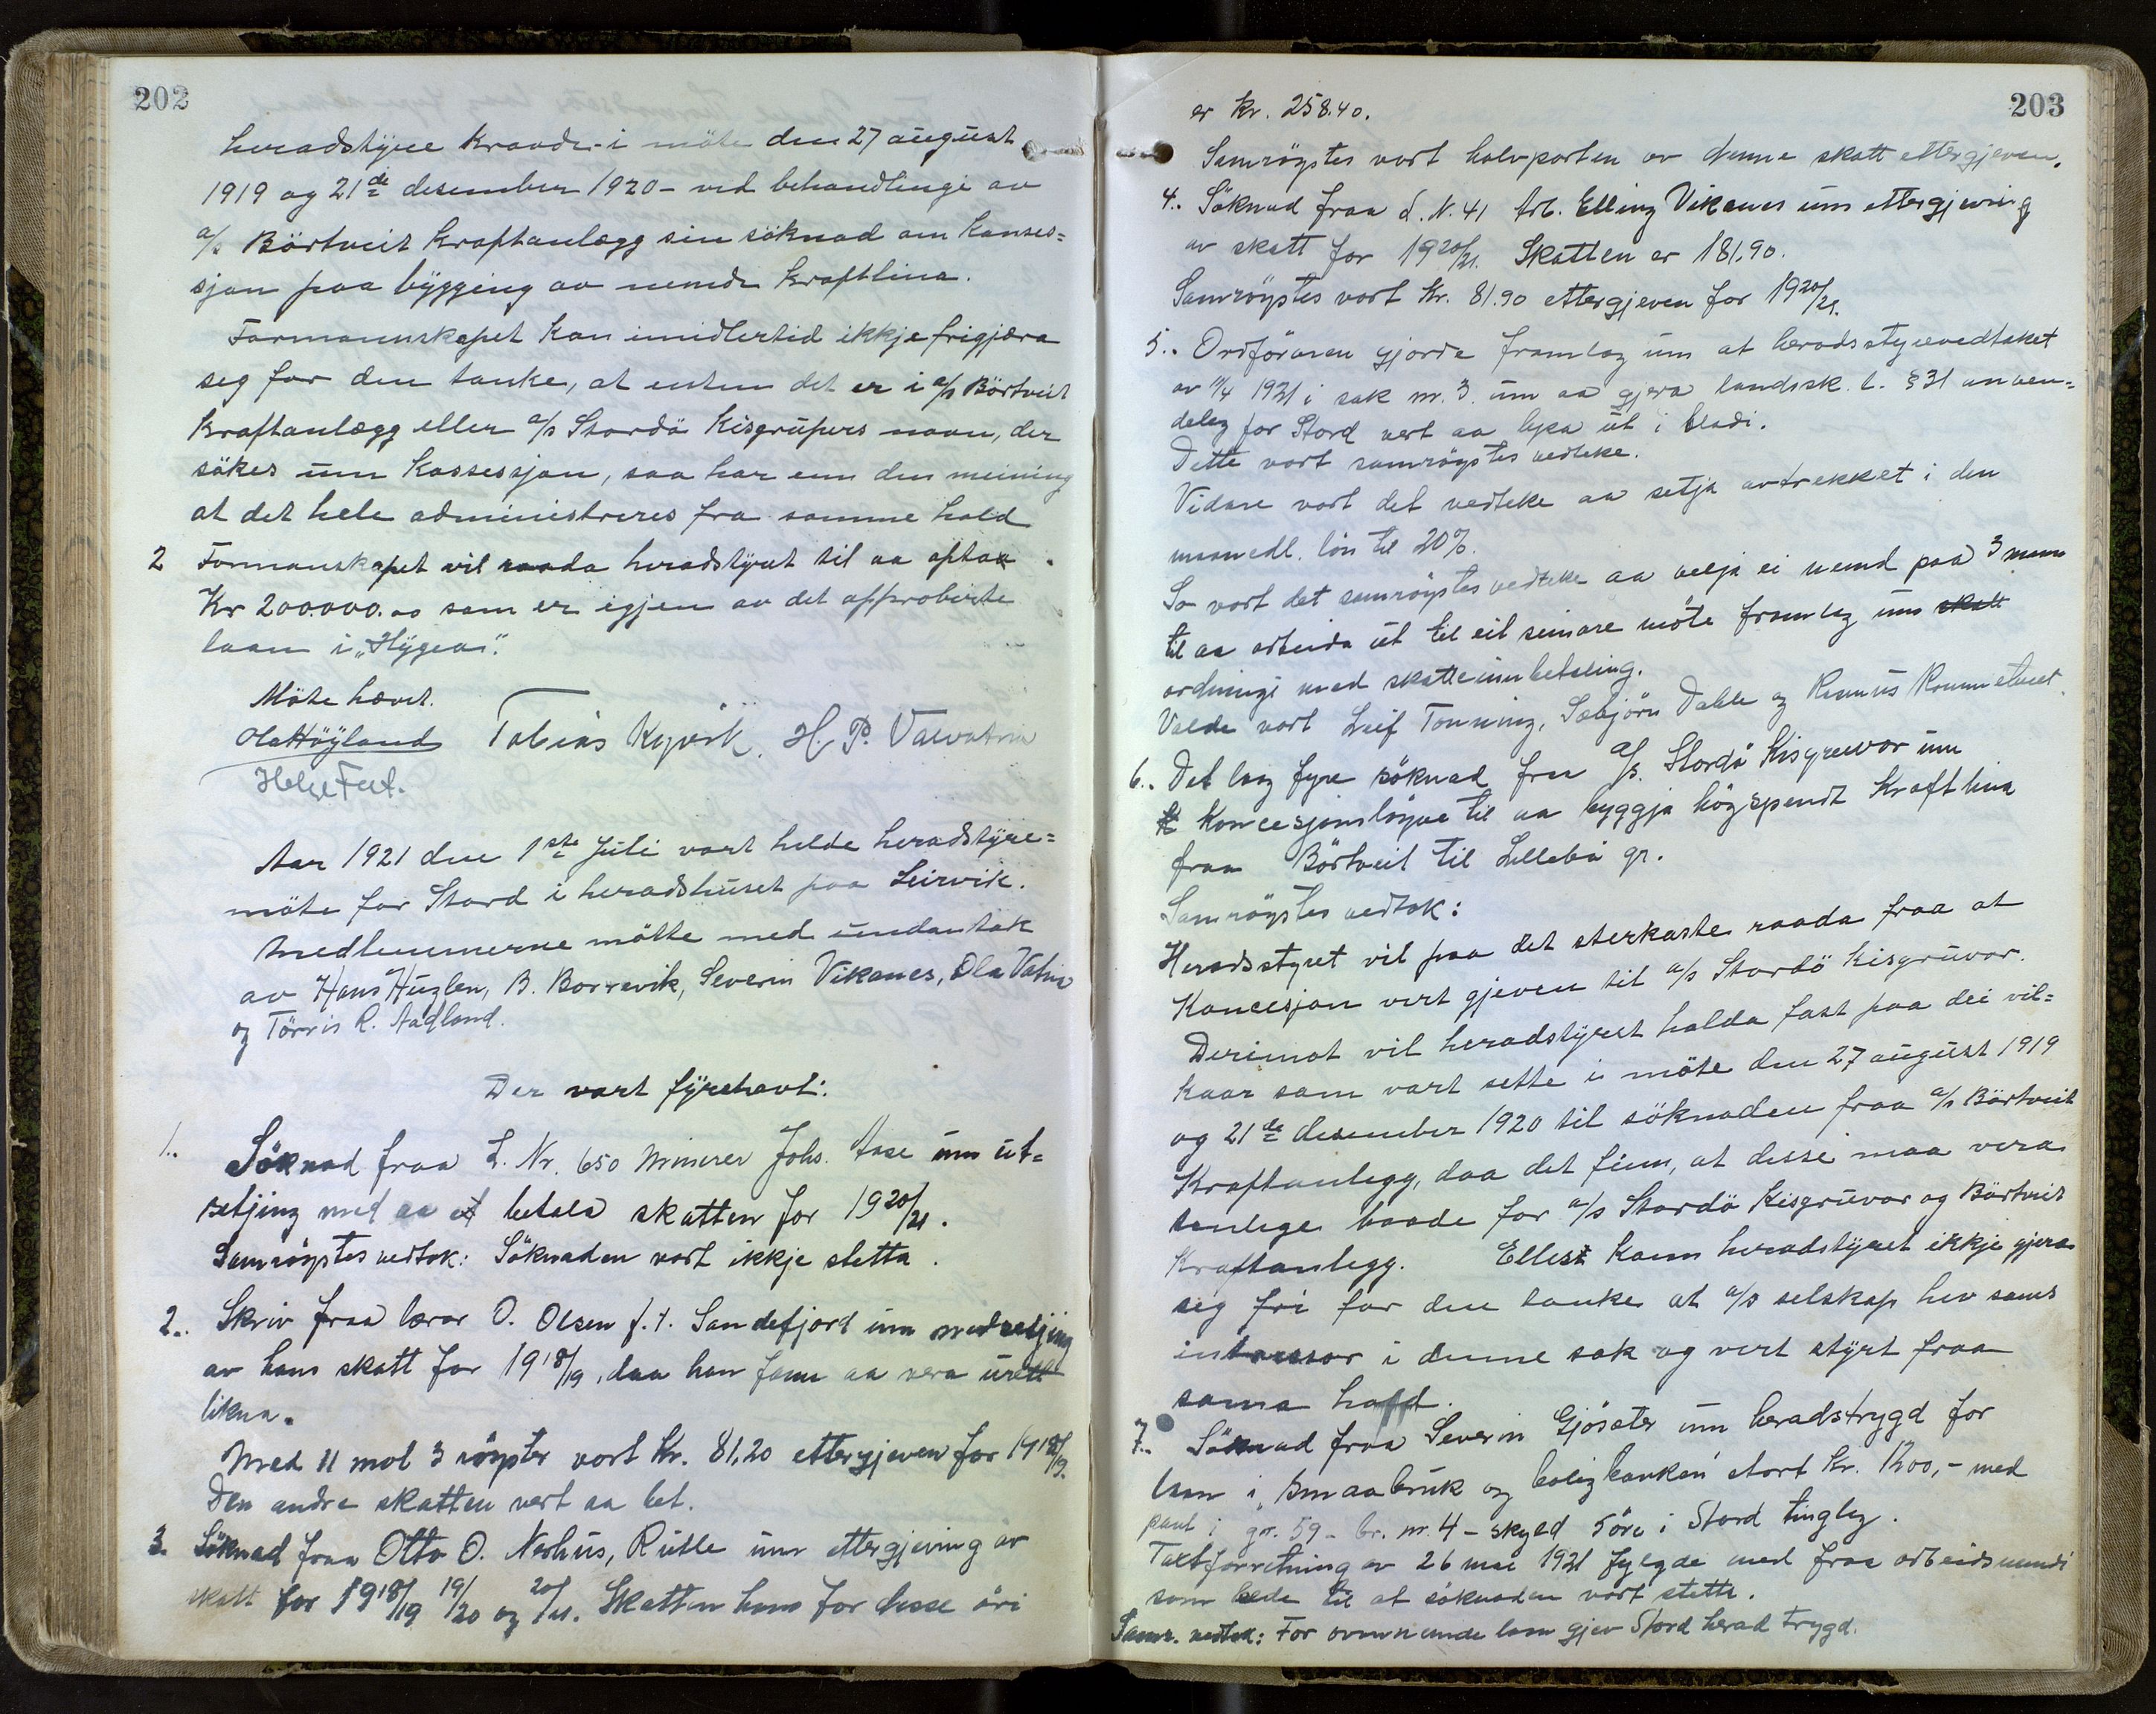 202
heradstyre kravde i möte den 27 august
1919 og 21de desember 1920 - ved behandlingi av
a/s Börtveit kraftanlægg sin söknad om konses=
sjon paa bygging av nemde kraftlina.
Formannskapet kan imidlertid ikkje frigjøra
seg for den tanke, at enten det er i a/s Börtveit
kraftanlægg eller a/s Stordö Kisgrupers navn, der
sökes um kossessjon, saa har enn den meining
at det hele administreres fra samme hold
2 Formannskapet vil raada heradstyret til aa optak
Kr 200.000.00 som er igjen av det approberte
laan i „Hygea".
Möte hævet.
Ola Höyland Tobias Kyvik. H. P. Valvatne
Helge Feet.
Aar 1921 den 1ste Juli vart helde heradstyre=
möte for Stord i heradshuset paa Leirvik.
Medlemmerne mötte med undantak
av Hans Huglen, B. Borrevik, Severin Vikanes, Ola Vatna
og Törris R. Aadland.
Der vart fyrehavt:
1.. Söknad fraa L. Nr. 650 Minerer Johs. Aase um ut=
setjing med aa betala skatten for 1920/21.
Samröystes vedtok: Söknaden vart ikkje stetta.
2.. Skriv fraa lærar O. Olsen f. t. Sandefjord um nedsetjing
av hans skatt for 1918/19, daa han fann aa vera urett
likna.
Med 11 mot 3 röyster vart kr. 81,20 ettergjeven for 1918/19.
Den andre skatten vert aa bet.
3. Söknad fraa Otto O. Nerhus, Rutle um ettergjeving av
skatt for 1918/19 19/20 og 20/21. Skatten hans for desse åri
203
er kr. 258.40.
Samröystes vart halvparten av denne skatt ettergjeven.
4.. Söknad fraa L. N. 41 Arb. Elling Vikanes um ettergjeving
av skatt for 1920/21. Skatten er 181,90.
Samröystes vart Kr. 81.90 ettergjeven for 1920/21.
5.. Ordföraren gjorde framlag um at heradsstyrevedtaket
av 11/4 1921 i sak nr. 3 um aa gjera landssk. l. § 31 anven=
deleg for Stord vert aa lysa ut i bladi.
Dette vart samröystes vedteke.
Vidare vart det vedteke aa setja avtrekket i den
maanedl. lön til 20%.
So vart det samröystes vedteke aa velja ei nemd paa 3 mann
til aa arbeida ut til eit seinare möte framlag um skatt
ordningi med skatteinnbetaling.
Valde vart Leif Tonning, Sæbjörn Dahle og Rasmus Rommetveit.
6.. Det laag fyre söknad fra A/S. Stordö Kisgruvor um
koncesjonslöyve til aa byggja högspendt kraftlina
fraa Börtveit til Lillebö gr.
Samröystes vedtok:
Heradsstyret vil paa det sterkaste raada fraa at
koncesjon vert gjeven til a/s Stordö Kisgruvor.
Derimot vil heradstyret halda fast paa dei vil=
kaar som vart sette i möte den 27 august 1919
og 21de desember 1920 til söknaden fraa a/s Börtveit
Kraftanlegg, daa det finn, at desse maa vera
tenlege baade for a/s Stordö Kisgruvor og Börtveit
Kraftanlegg. Ellest kann heradstyret ikkje gjera
seg fri for den tanke at a/s selskap hev sams
intressor i denne sak og vert styrt fraa
sama hald.
7.. Söknad fraa Severin Gjösæter um heradstrygd for
laan i „Smaabruk og boligbanken" stort kr. 1200,- med
pant i gr. 59 - br. nr. 4 - skyld 5 öre i Stord tinglag.
Takstforretning av 26 mai 1921 fylgde med fraa arbeidsnemndi
som bede til at söknaden vart stetta.
Samr. vedtok: For ovannemnde laan gjev Stord herad trygd.